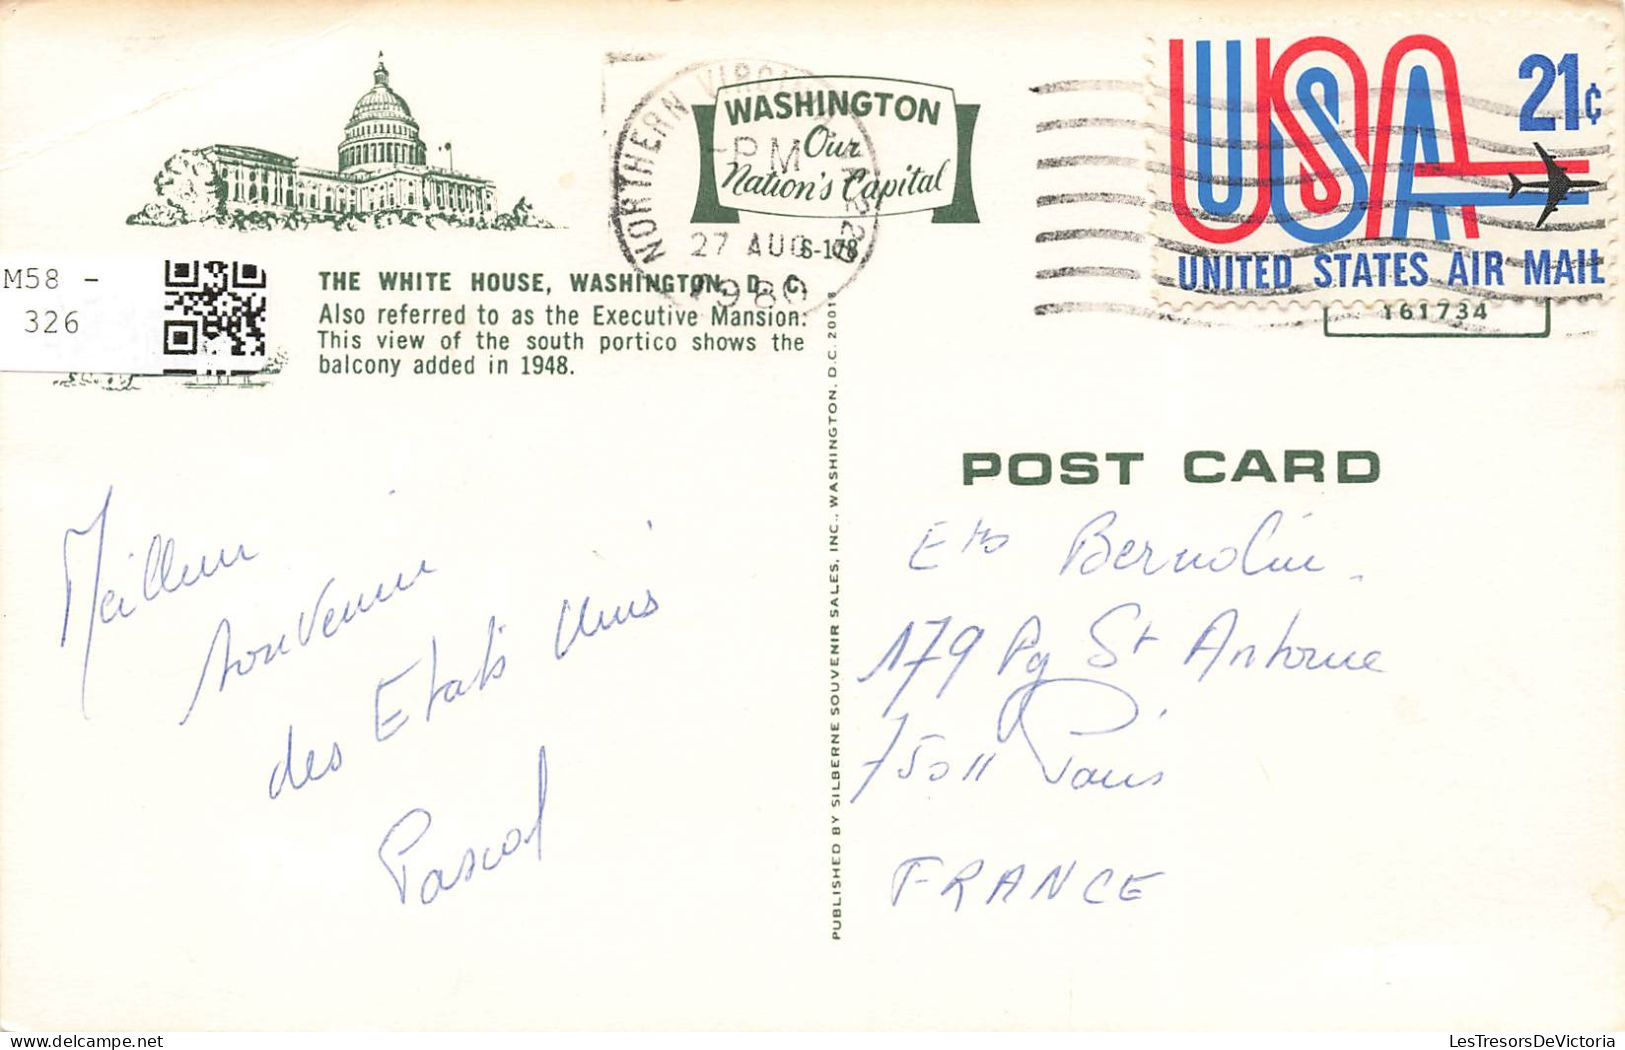 WASHINGTON
Our
Nation's Capital
NORTHERN VIRGINIA 220
PM
27 AUG
1980
S-178
USA
21¢
UNITED STATES AIR MAIL
161734
M58 -
326
THE WHITE HOUSE, WASHINGTON, D. C.
Also referred to as the Executive Mansion.
This view of the south portico shows the
balcony added in 1948.
POST CARD
PUBLISHED BY SILBERNE SOUVENIR SALES, INC., WASHINGTON, D.C. 20018
Meilleur
souvenir
des Etats Unis
Pascal
Ets Bernolin
179 Fg St Antoine
75011 Paris
FRANCE
LesTresorsDeVictoria